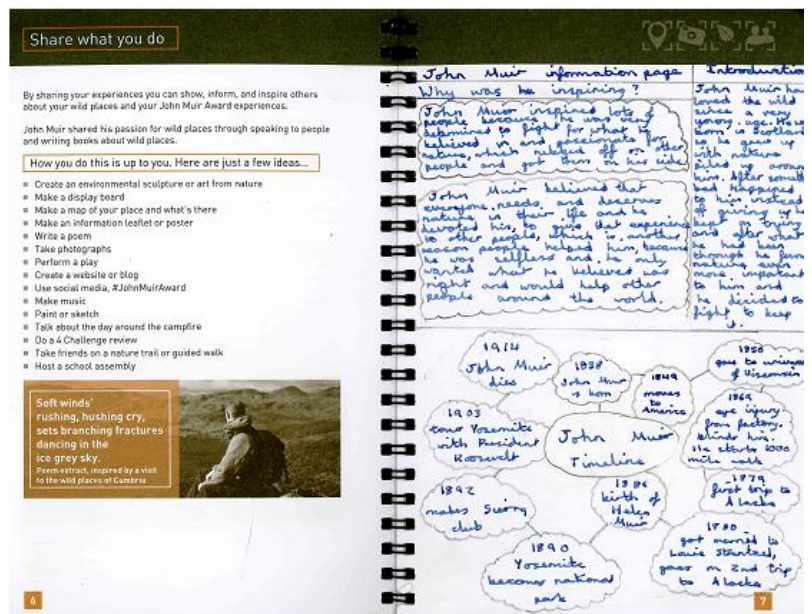 Share what you do
By sharing your experiences you can show, inform, and inspire others
about your wild places and your John Muir Award experiences.
John Muir shared his passion for wild places through speaking to people
and writing books about wild places.
How you do this is up to you. Here are just a few ideas...
Create an environmental sculpture or art from nature
Make a display board
Make a map of your place and what's there
Make an information leaflet or poster
Write a poem
Take photographs
Perform a play
Create a website or blog
Use social media, #JohnMuirAward
Make music
Paint or sketch
Talk about the day around the campfire
Do a 4 Challenge review
Take friends on a nature trail or guided walk
Host a school assembly
Soft winds'
rushing, hushing cry,
sets branching fractures
dancing in the
ice grey sky.
Poem extract, inspired by a visit
to the wild places of Cumbria
6
John Muir information page
Why was he inspiring?
John Muir inspired lots of
people because, he was very
determined to fight for what he
believed in and passionate for
nature, which off on other
people and got them on his side.
John Muir believed that
everyone, needs, and deserves
nature in their life and he
devoted his, to give that experience
to other people, which is another
reason people helped him, because
he was selfless and he only
wanted what he believed was
right and would help other
people around the world.
Introduction
John Muir has
loved the wild
since a very
young age. He was
born is Scotland
so he grew up
with nature
piled up around
him. After something
bad happened
to him, instead
of giving up he
kept on trying
and after what
he had been
through he found
nature even
more important
to him and
he decided to
fight to keep
it.
John Muir
Timeline
1838
John Muir
is born
1849
moves
to
America
1850
goes to
of Wisconsin
1869
eye injury
from factory.
blinds him.
He starts 1000
mile walk
1879
first trip to
Alacka
1880
got married to
Louie
goes on 2nd trip
to Alacka
1886
birth of
Helen
Muir
1890
Yosemite
becomes national
park
1892
makes
club
1903
tour Yosemite
with President
Roosvelt
1914
John Muir
dies
7